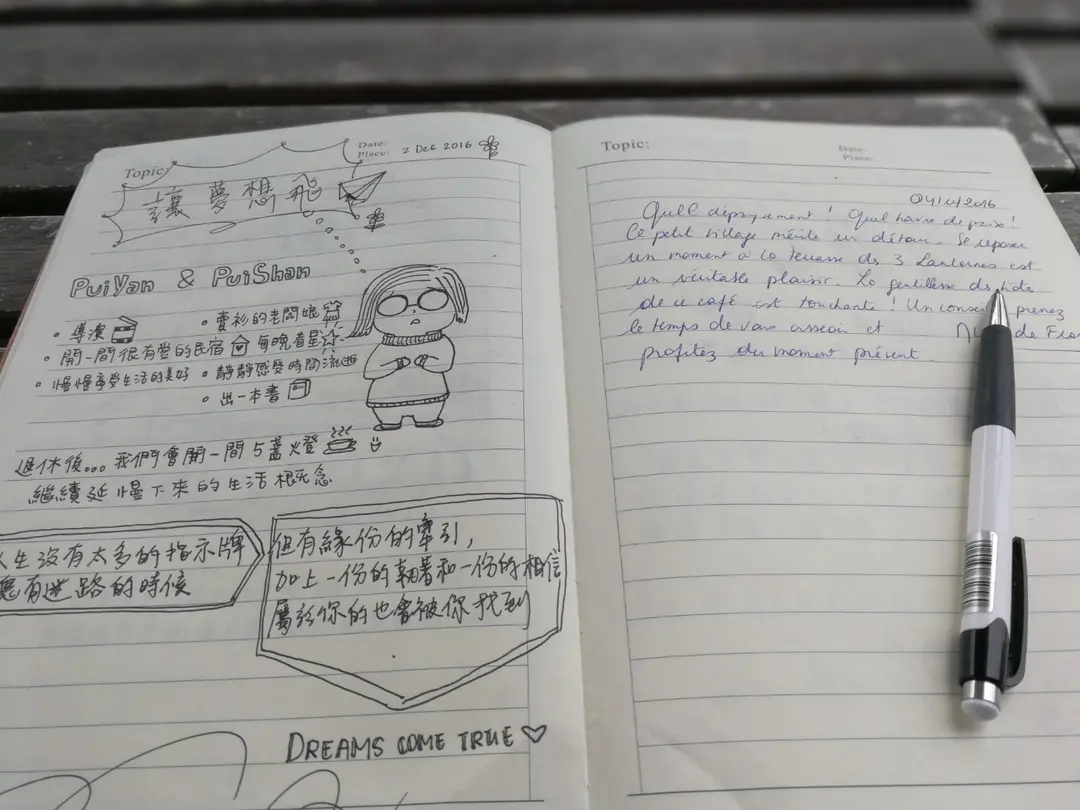 Topic:
Date:
Place: 2 Dec 2016
讓夢想飛
PuiYan & PuiShan
• 導演
• 賣衫的老闆娘
• 開一間很有愛的民宿 每晚看星
• 慢慢享受生活的美好 • 靜靜感受時間流逝
• 出一本書
退休後... 我們會開一間5盞火燈
繼續延慢下來的生活概念
人生沒有太多的指示牌
總有迷路的時候
但有緣份的牽引,
加上一份的執著和一份的相信
屬於你的也會被你找到
DREAMS COME TRUE
Topic:
Date:
Place:
2016
Quel dépaysement ! Quel havre de paix !
Ce petit village mérite un détour. Se reposer
un moment à la terrasse des 3 Lanternes est
un véritable plaisir. La gentillesse de
de ce café est touchante ! Un conseil prenez
le temps de vous asseoir et
profitez du moment présent.
de